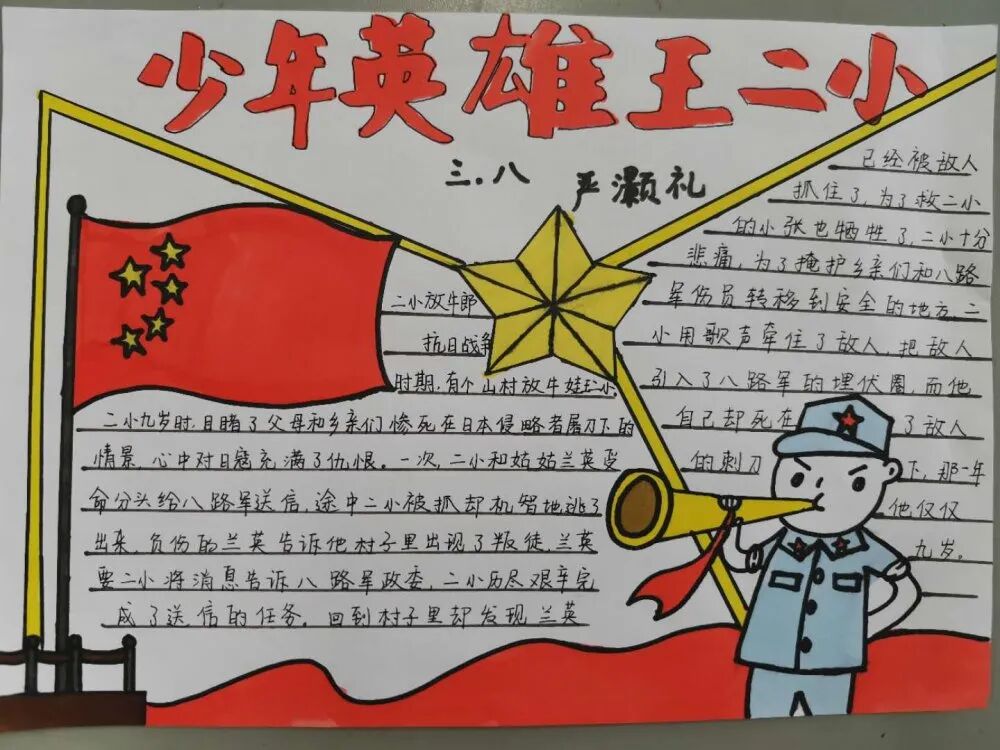 少年英雄王二小
三.八 严灏礼
二小放牛郎
抗日战争
时期,有个山村放牛娃王二小,
二小九岁时,目睹了父母和乡亲们惨死在日本侵略者屠刀下的
情景,心中对日寇充满了仇恨。一次,二小和姑姑兰英受
命分头给八路军送信,途中二小被抓却机智地逃了
出来,负伤的兰英告诉他村子里出现了叛徒,兰英
要二小将消息告诉八路军政委,二小历尽艰辛完
成了送信的任务。回到村子里却发现兰英
已经被敌人
抓住了,为了救二小
的小张也牺牲了,二小十分
悲痛,为了掩护乡亲们和八路
军伤员转移到安全的地方,二
小用歌声牵住了敌人,把敌人
引入了八路军的埋伏圈,而他
自己却死在了敌人
的刺刀下,那一年
他仅仅
九岁。